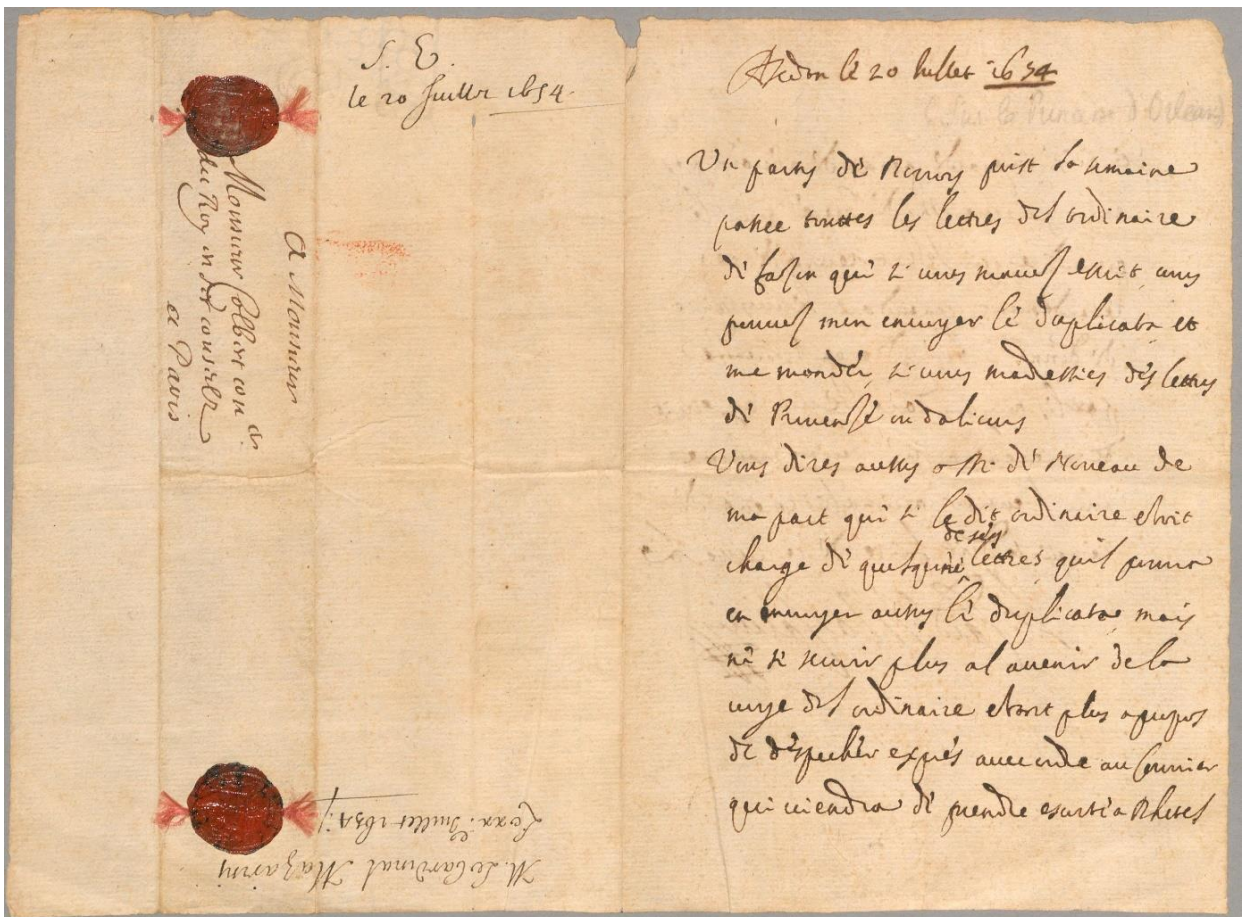 S. E.
le 20 Juillet 1654.
A Monsieur
Monsieur Colbert con er
du Roy en ses conseilz
a Paris
M. Le Cardinal Mazarin
Juillet 1654
le 20 Juillet 1654
Un party de Rocroy prist la semaine
passee touttes les lettres des ordinaire
de fason que si vous maves escrit vous
pouves men envoyer le duplicata et
me mander si vous madressies des lettres
de Provense ou dalieurs
Vous dires aussy a Mr de Nouveau de
ma part que si le dit ordinaire estoit
charge de quelque de ses lettres quil pourra
en envoyer aussy le duplicata mais
ne se servir plus a l avenir de la
voye des ordinaire estant plus apropos
de despecher expres avec ordre au Courrier
qui viendra de prendre escorte a Rhetel